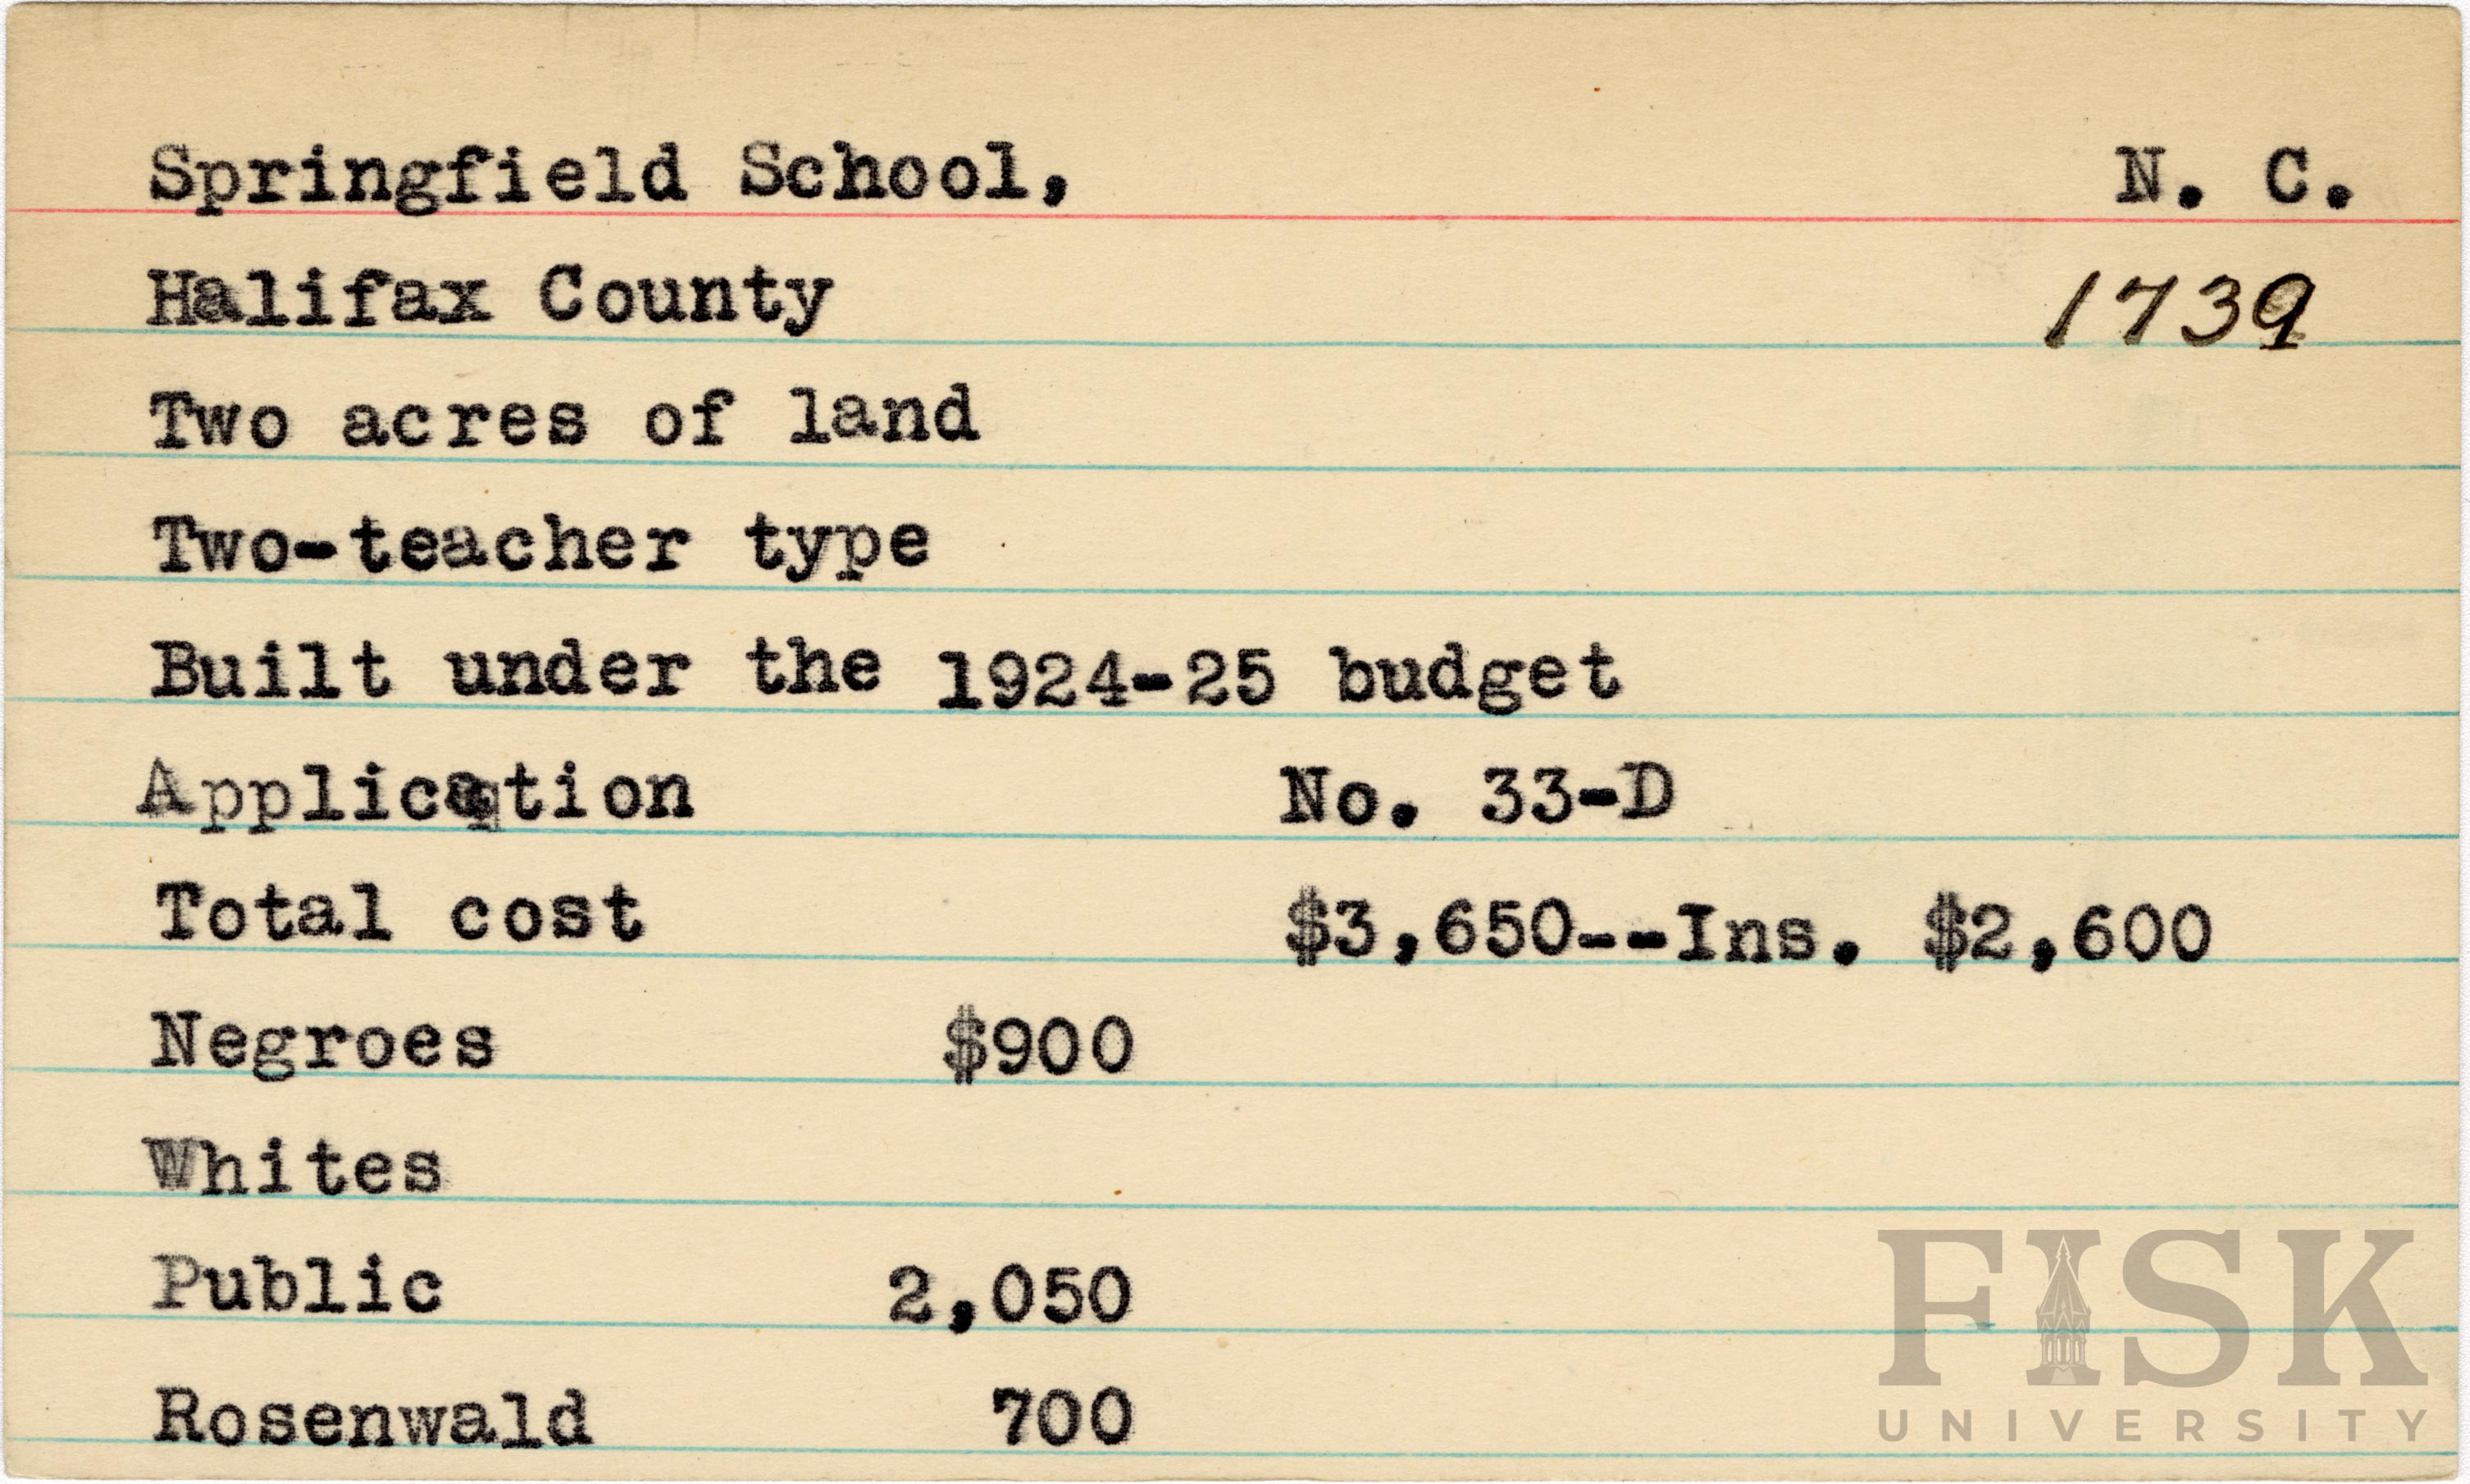 Springfield School, N. C.
Halifax County 1739
Two acres of land
Two-teacher type
Built under the 1924-25 budget
Application No. 33-D
Total cost $3,650--Ins. $2,600
Negroes $900
Whites
Public 2,050
Rosenwald 700
FISK
UNIVERSITY